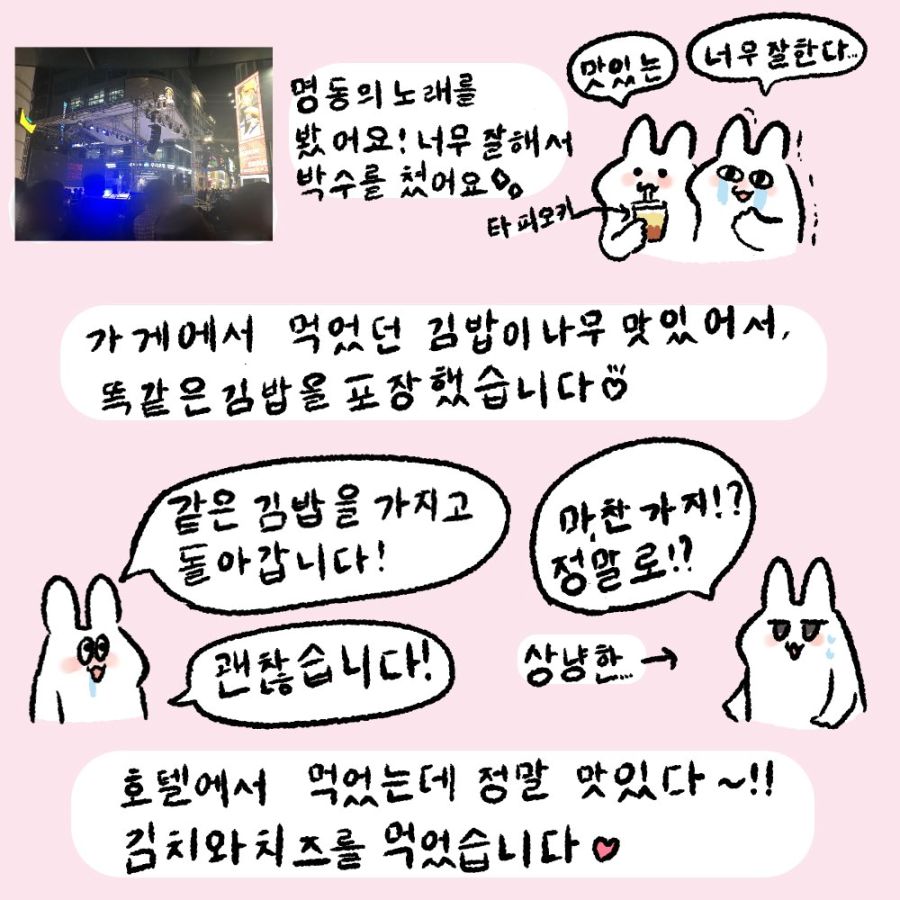 명동의 노래를
봤어요! 너무 잘해서
박수를 쳤어요
맛있는
너무 잘한다...
타피오카
가게에서 먹었던 김밥이 나무 맛있어서,
똑같은 김밥올 포장했습니다
같은 김밥을 가지고
돌아갑니다!
괜찮습니다!
마찬가지!?
정말로!?
상냥한...
호텔에서 먹었는데 정말 맛있다~!!
김치와 치즈를 먹었습니다